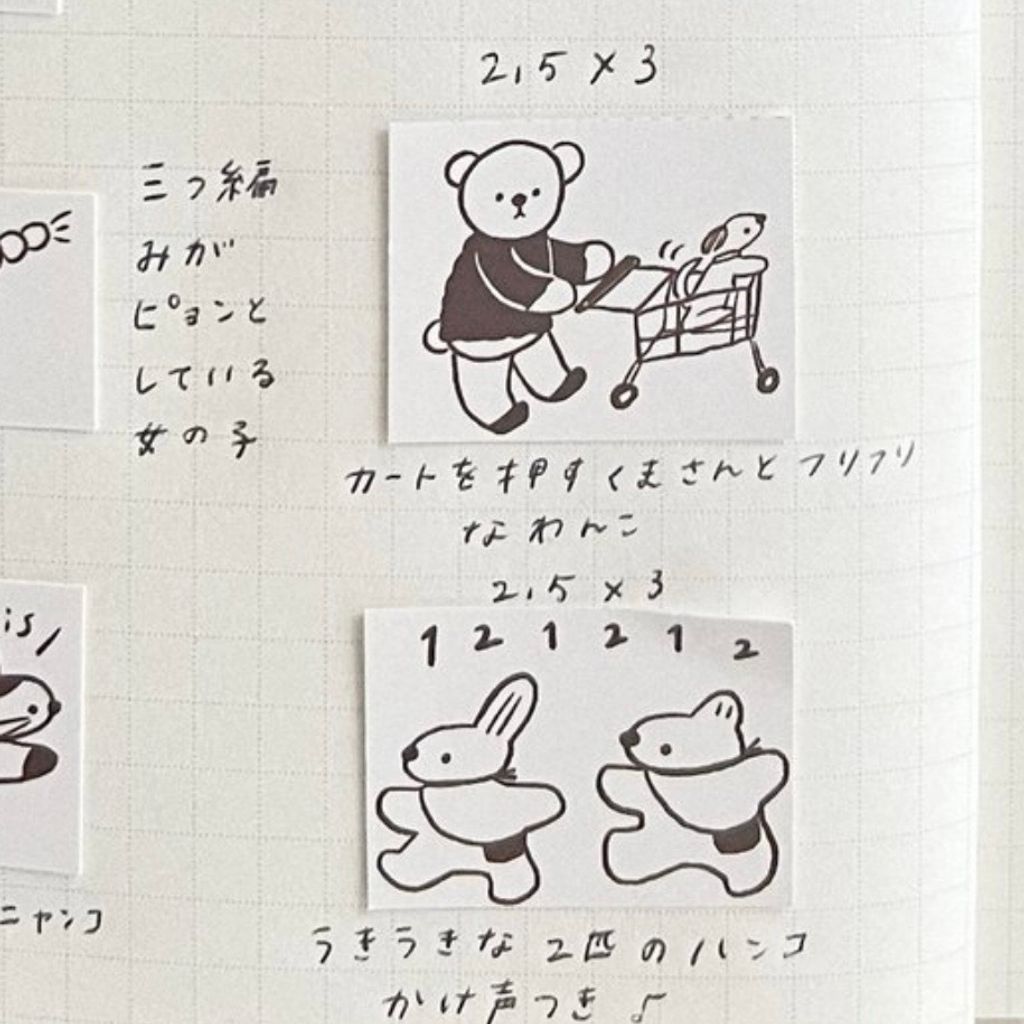 2,5×3
三つ編
みが
ピョンと
している
女の子
カートを押すくまさんとフリフリ
なわんこ
2,5×3
is/
1 2 1 2 1 2
ニャンコ
うきうきな2匹のハンコ
かけ声つき♪